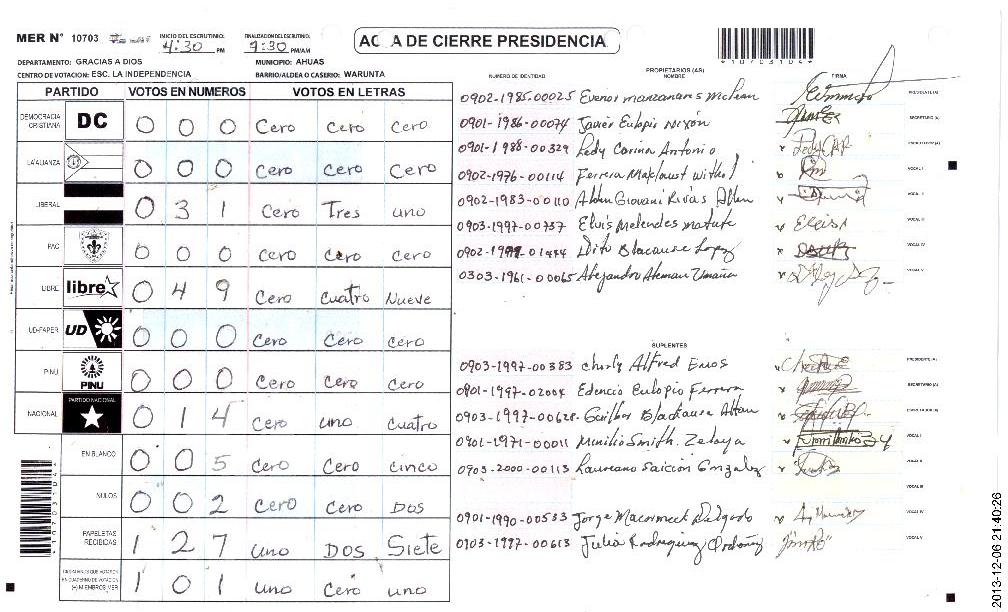 MER N° 10703
INICIO DEL ESCRUTINIO: 4:30 PM
FINALIZACION DEL ESCRUTINIO: 9:30 PM/AM
AC A DE CIERRE PRESIDENCIA
10703104
DEPARTAMENTO: GRACIAS A DIOS
MUNICIPIO: AHUAS
CENTRO DE VOTACION: ESC. LA INDEPENDENCIA
BARRIO/ALDEA O CASERIO: WARUNTA
PARTIDO VOTOS EN NUMEROS VOTOS EN LETRAS
DEMOCRACIA CRISTIANA DC 0 0 0 Cero Cero Cero
LA ALIANZA 0 0 0 Cero Cero Cero
LIBERAL 0 3 1 Cero Tres uno
PAC 0 0 0 Cero Cero Cero
LIBRE libre 0 4 9 Cero Cuatro Nueve
UD-FAPER UD 0 0 0 Cero Cero Cero
PINU PINU 0 0 0 Cero Cero Cero
NACIONAL PARTIDO NACIONAL 0 1 4 Cero uno Cuatro
EN BLANCO 0 0 5 Cero Cero Cinco
NULOS 0 0 2 Cero Cero Dos
PAPELETAS RECIBIDAS 1 2 7 uno Dos Siete
CIUDADANOS QUE VOTARON EN CUADERNO DE VOTACION (+) MIEMBROS MER 1 0 1 uno Cero uno
PROPIETARIOS (AS)
NUMERO DE IDENTIDAD NOMBRE FIRMA
0902-1985-00025 Evenor manzanares mclean PRESIDENTE (A)
0901-1986-00074 Javier Eulopio Nixón SECRETARIO (A)
0901-1988-00329 Ledy Carina Antonio
0902-1976-00114 Ferrera VOCAL I
0902-1983-00110 Alden Giovani Rivas VOCAL II
0903-1997-00737 Elvis Melendes matute VOCAL III
0902- Lopez VOCAL IV
0303-1961-00065 Alejandro Aleman Umaña VOCAL V
SUPLENTES
0903-1997-00383 Alfred Enos PRESIDENTE (A)
0901-1997-02004 Edencio Eulopio Ferrera SECRETARIO (A)
0903-1997-00628
0901-1971-00011 Minilio Smith. Zelaya VOCAL I
0903-2000-00113 Laureano Saicion Gonzalez VOCAL II
VOCAL III
0901-1990-00533 Jorge Macormeck Delgado VOCAL IV
0903-1997-00613 Julia Rodriguez Ordoñez VOCAL V
2013-12-06 21:40:26